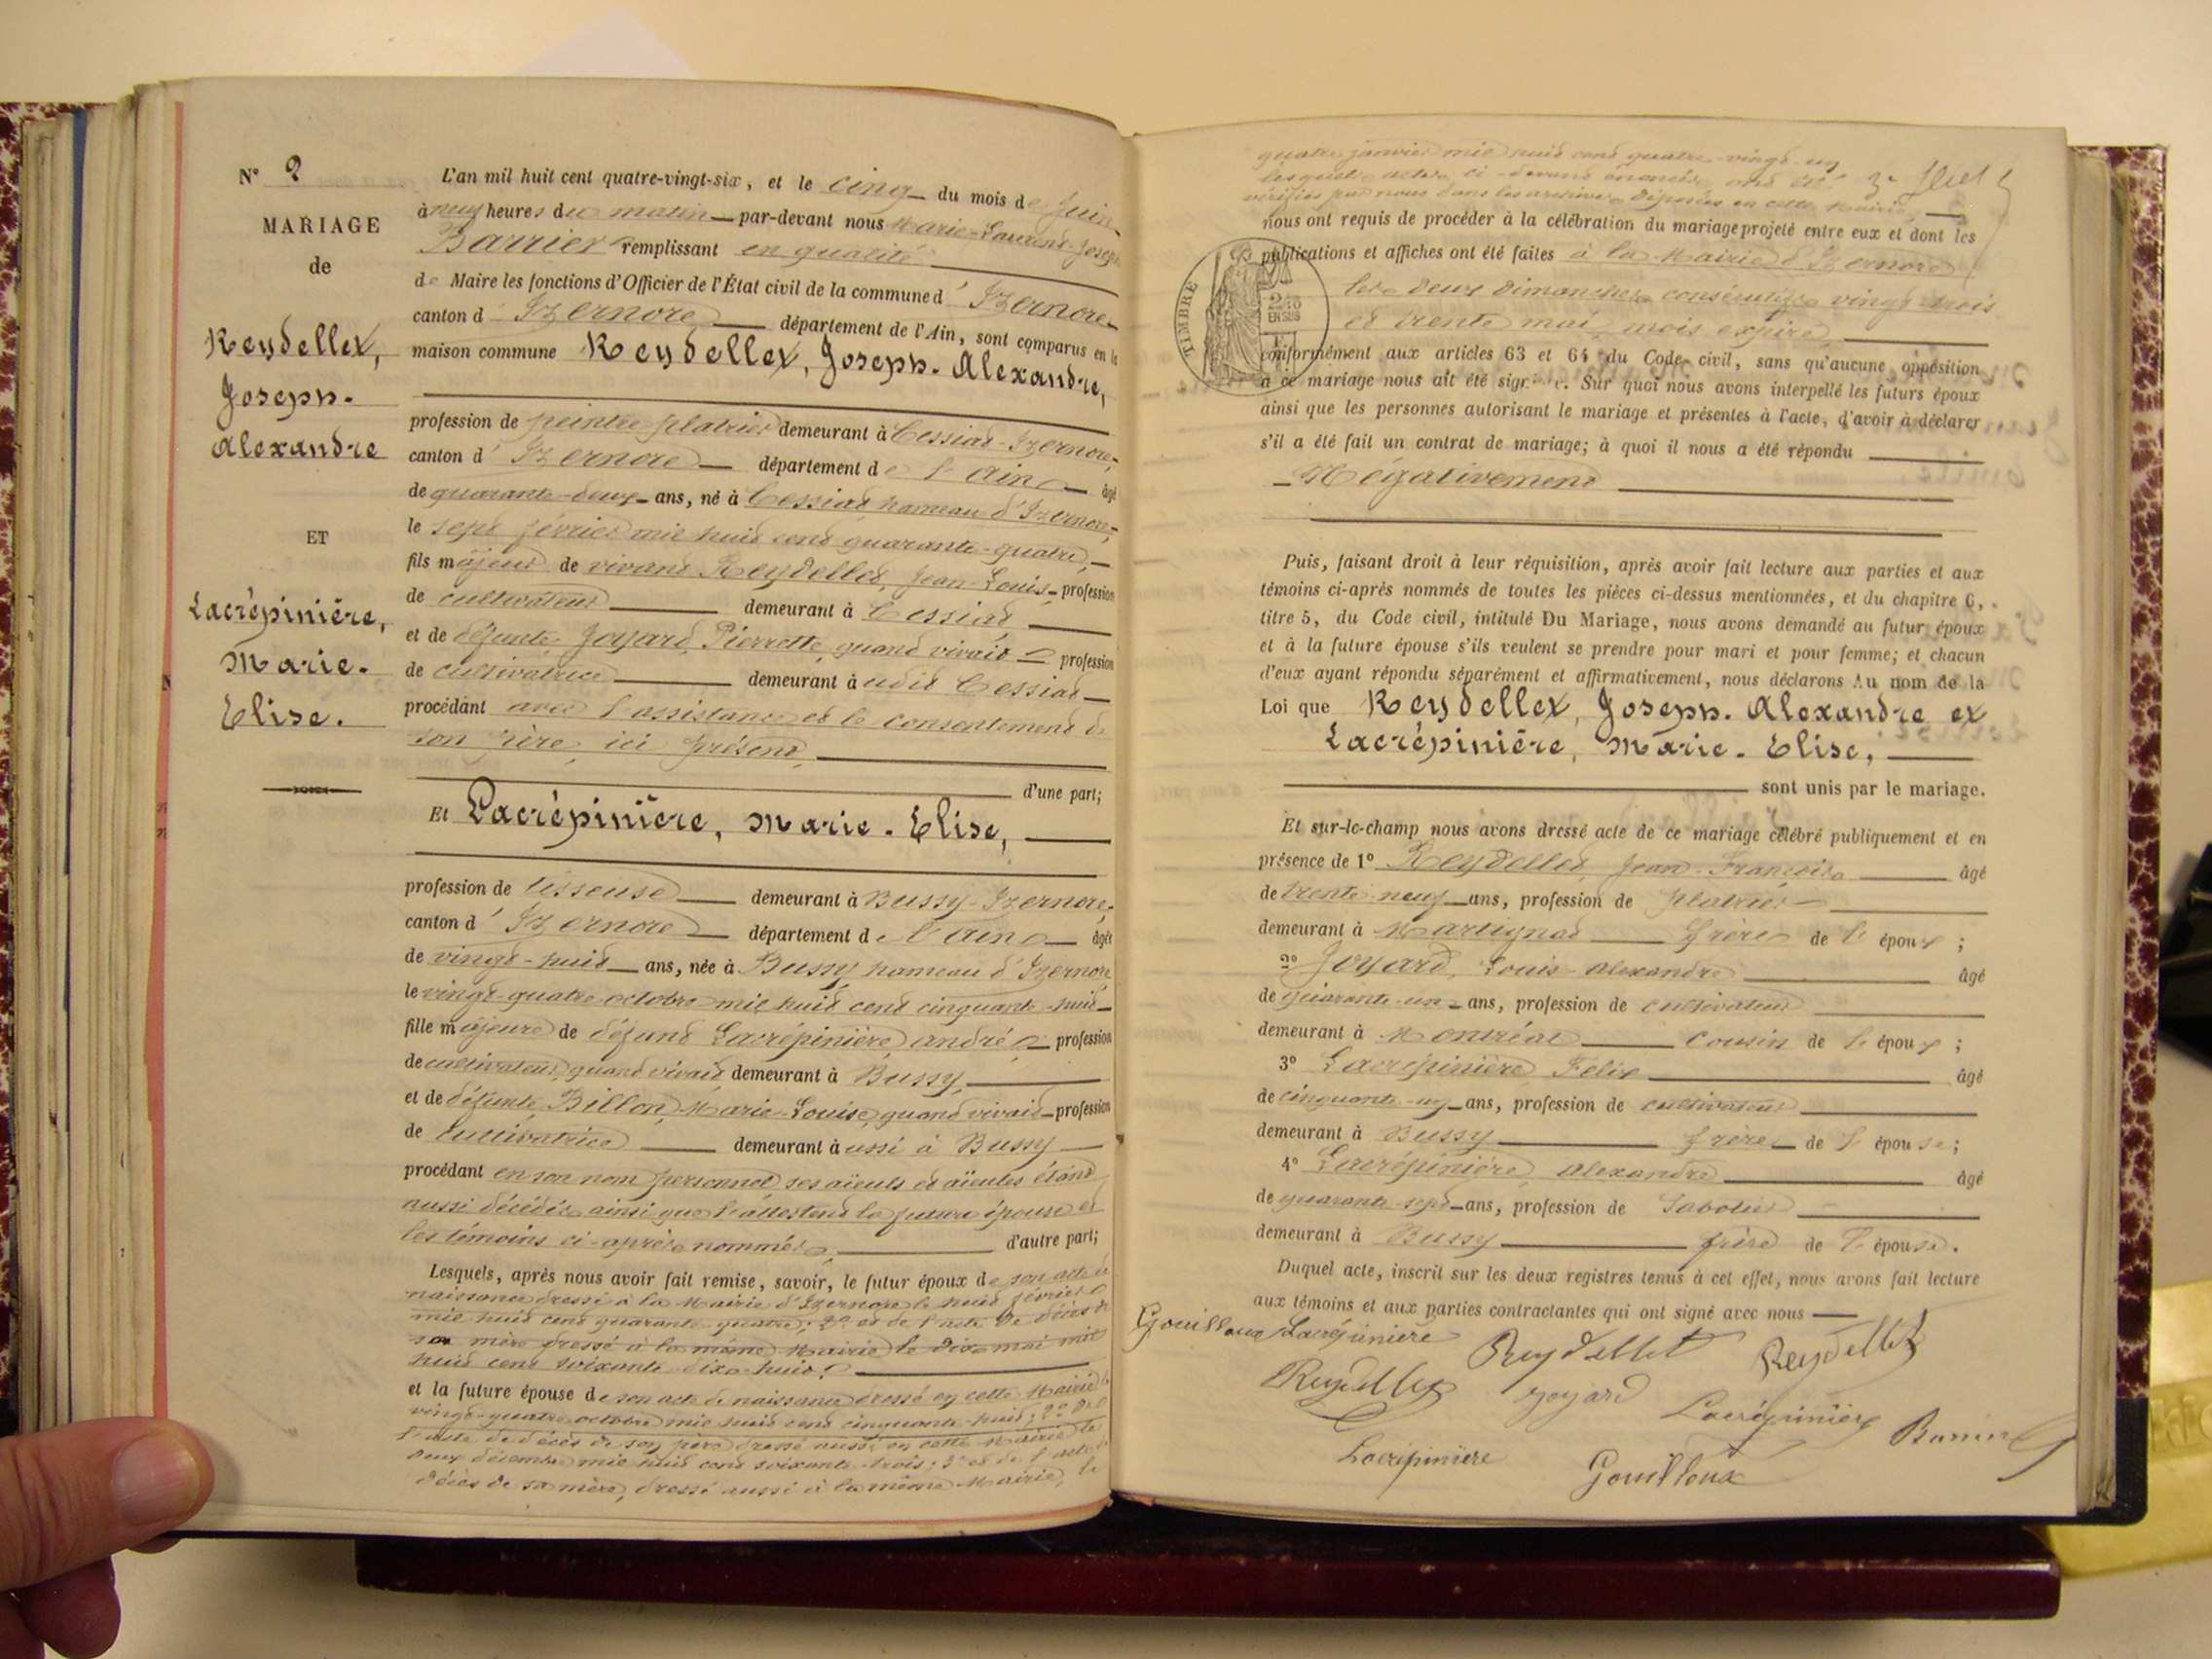 N° 2
MARIAGE
de
Reydellet,
Joseph-
Alexandre
ET
Lacrépinière,
Marie-
Elise.
L'an mil huit cent quatre-vingt-six, et le cinq du mois de Juin
à neuf heures du matin par-devant nous Marie-Laurent-Joseph
Barrier remplissant en qualité
de Maire les fonctions d'Officier de l'État civil de la commune d'Izernore
canton d'Izernore département de l'Ain, sont comparus en la
maison commune Reydellet, Joseph-Alexandre,
profession de peintre plâtrier demeurant à Cessiat-Izernore,
canton d'Izernore département de l'Ain âgé
de quarante-deux ans, né à Cessiat hameau d'Izernore,
le sept février mil huit cent quarante-quatre,
fils majeur de vivant Reydellet, Jean-Louis, profession
de cultivateur demeurant à Cessiat
et de défunte Joyard, Pierrette, quand vivait profession
de cultivatrice demeurant audit Cessiat
procédant avec l'assistance et le consentement de
son père, ici présent,
d'une part;
Et Lacrépinière, Marie-Elise,
profession de tisseuse demeurant à Bussy-Izernore,
canton d'Izernore département de l'Ain âgée
de vingt-huit ans, née à Bussy hameau d'Izernore
le vingt-quatre octobre mil huit cent cinquante-huit
fille majeure de défunt Lacrépinière André profession
de cultivateur, quand vivait demeurant à Bussy,
et de défunte Billon, Marie-Louise, quand vivait profession
de cultivatrice demeurant aussi à Bussy
procédant en son nom personnel ses aïeuls et aïeules étant
aussi décédés ainsi que l'attestent la future épouse et
les témoins ci-après nommés d'autre part;
Lesquels, après nous avoir fait remise, savoir, le futur époux de son acte de
naissance dressé à la Mairie d'Izernore le huit février
mil huit cent quarante-quatre; 2° et de l'acte de décès de
sa mère dressé à la même Mairie le dix mai mil
huit cent soixante-dix-huit;
et la future épouse de son acte de naissance dressé en cette Mairie le
vingt-quatre octobre mil huit cent cinquante-huit; 2° de
l'acte de décès de son père dressé aussi en cette Mairie le
deux décembre mil huit cent soixante-trois; 3° et de l'acte de
décès de sa mère, dressé aussi à la même Mairie, le
quatre janvier mil huit cent quatre-vingt-un
lesquels actes ci-devant énoncés ont été
vérifiés par nous dans les archives déposées en cette Mairie,
nous ont requis de procéder à la célébration du mariage projeté entre eux et dont les
publications et affiches ont été faites à la Mairie d'Izernore
les deux dimanches consécutifs vingt-trois
et trente mai, mois expiré,
TIMBRE
2/10
EN SUS
conformément aux articles 63 et 64 du Code civil, sans qu'aucune opposition
à ce mariage nous ait été signifiée. Sur quoi nous avons interpellé les futurs époux
ainsi que les personnes autorisant le mariage et présentes à l'acte, d'avoir à déclarer
s'il a été fait un contrat de mariage; à quoi il nous a été répondu
Négativement
Puis, faisant droit à leur réquisition, après avoir fait lecture aux parties et aux
témoins ci-après nommés de toutes les pièces ci-dessus mentionnées, et du chapitre 6,
titre 5, du Code civil, intitulé Du Mariage, nous avons demandé au futur époux
et à la future épouse s'ils veulent se prendre pour mari et pour femme; et chacun
d'eux ayant répondu séparément et affirmativement, nous déclarons Au nom de la
Loi que Reydellet, Joseph-Alexandre et
Lacrépinière, Marie-Elise,
sont unis par le mariage.
Et sur-le-champ nous avons dressé acte de ce mariage célébré publiquement et en
présence de 1° Reydellet, Jean-François âgé
de trente-neuf ans, profession de plâtrier
demeurant à Martignat frère de l'époux;
2° Joyard, Louis-Alexandre âgé
de quarante-un ans, profession de cultivateur
demeurant à Montréal cousin de l'époux;
3° Lacrépinière Félix âgé
de cinquante-un ans, profession de cultivateur
demeurant à Bussy frère de l'épouse;
4° Lacrépinière, Alexandre âgé
de quarante-sept ans, profession de sabotier
demeurant à Bussy frère de l'épouse.
Duquel acte, inscrit sur les deux registres tenus à cet effet, nous avons fait lecture
aux témoins et aux parties contractantes qui ont signé avec nous
Gouilloux Lacrépinière Reydellet Reydellet
Reydellet Joyard Lacrépinière Barrier
Lacrépinière Gouilloux